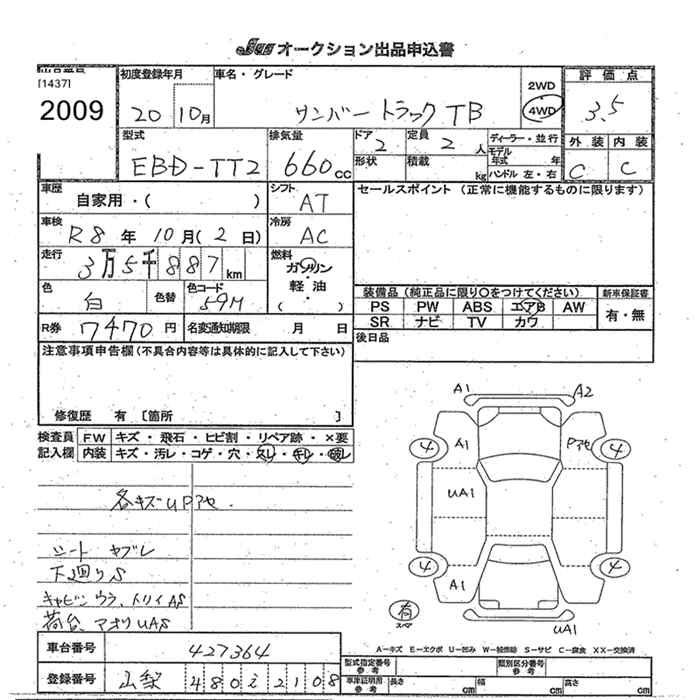 JUS オークション出品申込書
出品番号
[1437]
2009
初度登録年月
20 10月
車名・グレード
サンバー トラック TB
2WD
4WD
評価点
3.5
外装 内装
C C
型式
EBD-TT2
排気量
660cc
ドア
2
形状
定員
2人
積載 kg
ディーラー・並行
モデル年式 年
ハンドル 左・右
車歴
自家用・( )
シフト
AT
セールスポイント (正常に機能するものに限ります)
車検
R8年 10月(2日)
冷房
AC
走行
3万5千887km
燃料
ガソリン
軽油
( )
色
白
色替
色コード
59M
装備品 (純正品に限り○をつけてください)
PS PW ABS エアB AW
SR ナビ TV カワ
新車保証書
有・無
R券 7470円
名変通知期限 月 日
後日品
注意事項申告欄(不具合内容等は具体的に記入して下さい)
修復歴 有 [箇所 ]
検査員記入欄
FW キズ・飛石・ヒビ割・リペア跡・×要
内装 キズ・汚レ・コゲ・穴・スレ・キレ・破レ
各キズUPアセ.
シート ヤブレ
下廻りS
キャビンウラ、トリイAS
荷台、アオリUAS
A1 A2
④ A1 Pアセ ④
UA1
④ A1 ④
有
スペア
UA1
A-キズ E-エクボ U-凹み W-補修跡 S-サビ C-腐食 XX-交換済
車台番号 427364
登録番号 山梨 480 い 2108
型式指定番号 参考
類別区分番号 参考
車庫証明用 参考
長さ cm 幅 cm 高さ cm